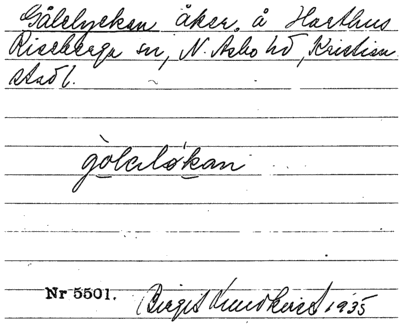 Gålelyckan åker, å Harthus
Riseberga sn, N. Åsbo hd, Kristian
stad l.
gòlelǿkan
Nr 5501. Birgit Lundkvist 1935